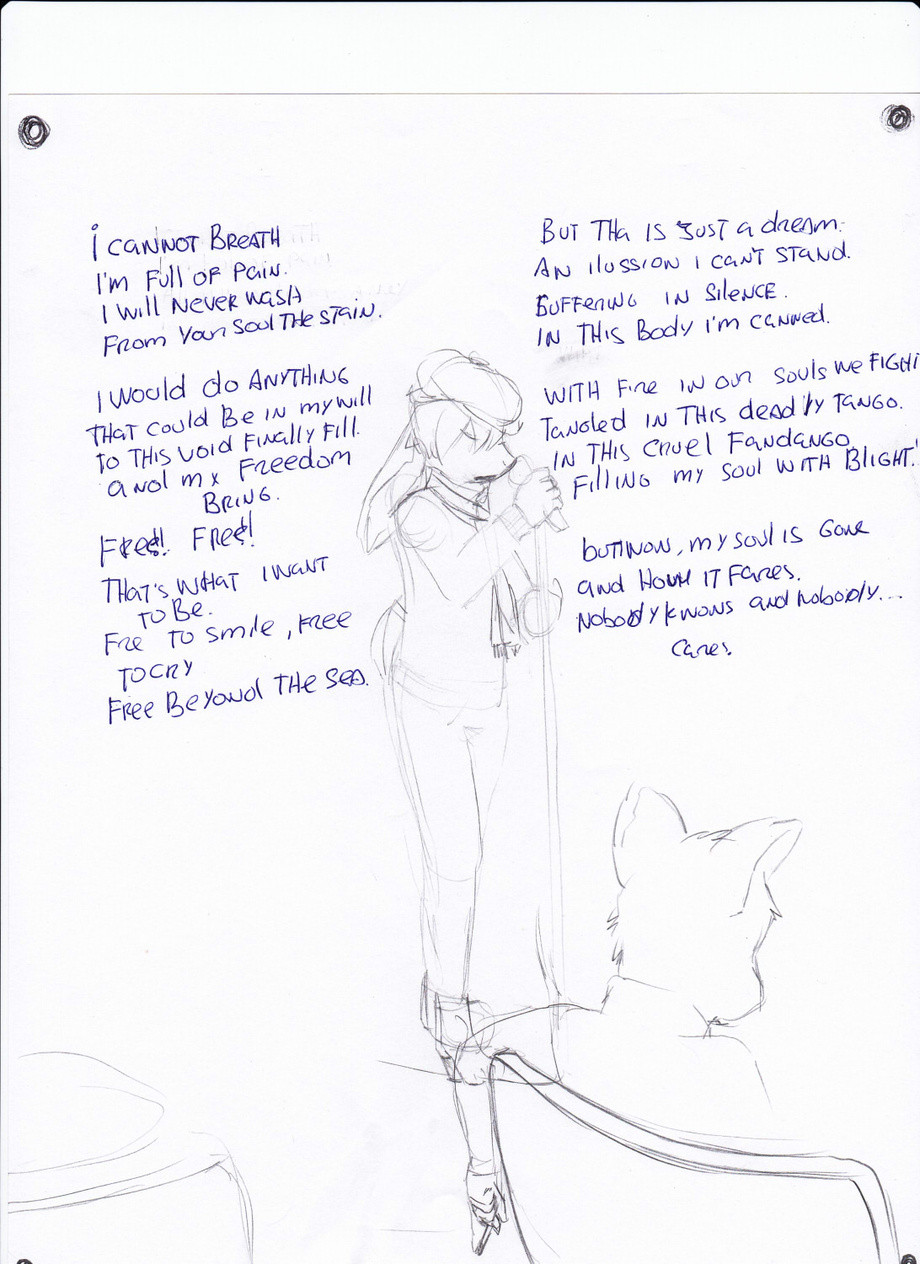 I CANNOT BREATH
I'm Full OF Pain.
I will Never wash
From Your Soul The STAIN.
I WOULD do ANYTHING
THAT could Be IN my will
To THIS VOID Finally Fill.
and my Freedom
BRING.
FREE! FREE!
THAT'S WHAT I WANT
TO Be.
Fre TO Smile, Free
TO CRY
Free Beyond THE Sea.
BUT Tha IS JUST a dream.
AN ilussion I CAN'T STAND.
SUFFERING IN Silence.
IN THIS Body I'm canned.
WITH Fire IN our Souls we FIGHT
Tangled IN THIS deadly TANGO.
IN THIS Cruel Fandango
Filling my Soul WITH Blight!
BUT NOW, my soul is Gone
and How IT Fares.
Nobody knows and nobody...
Cares.